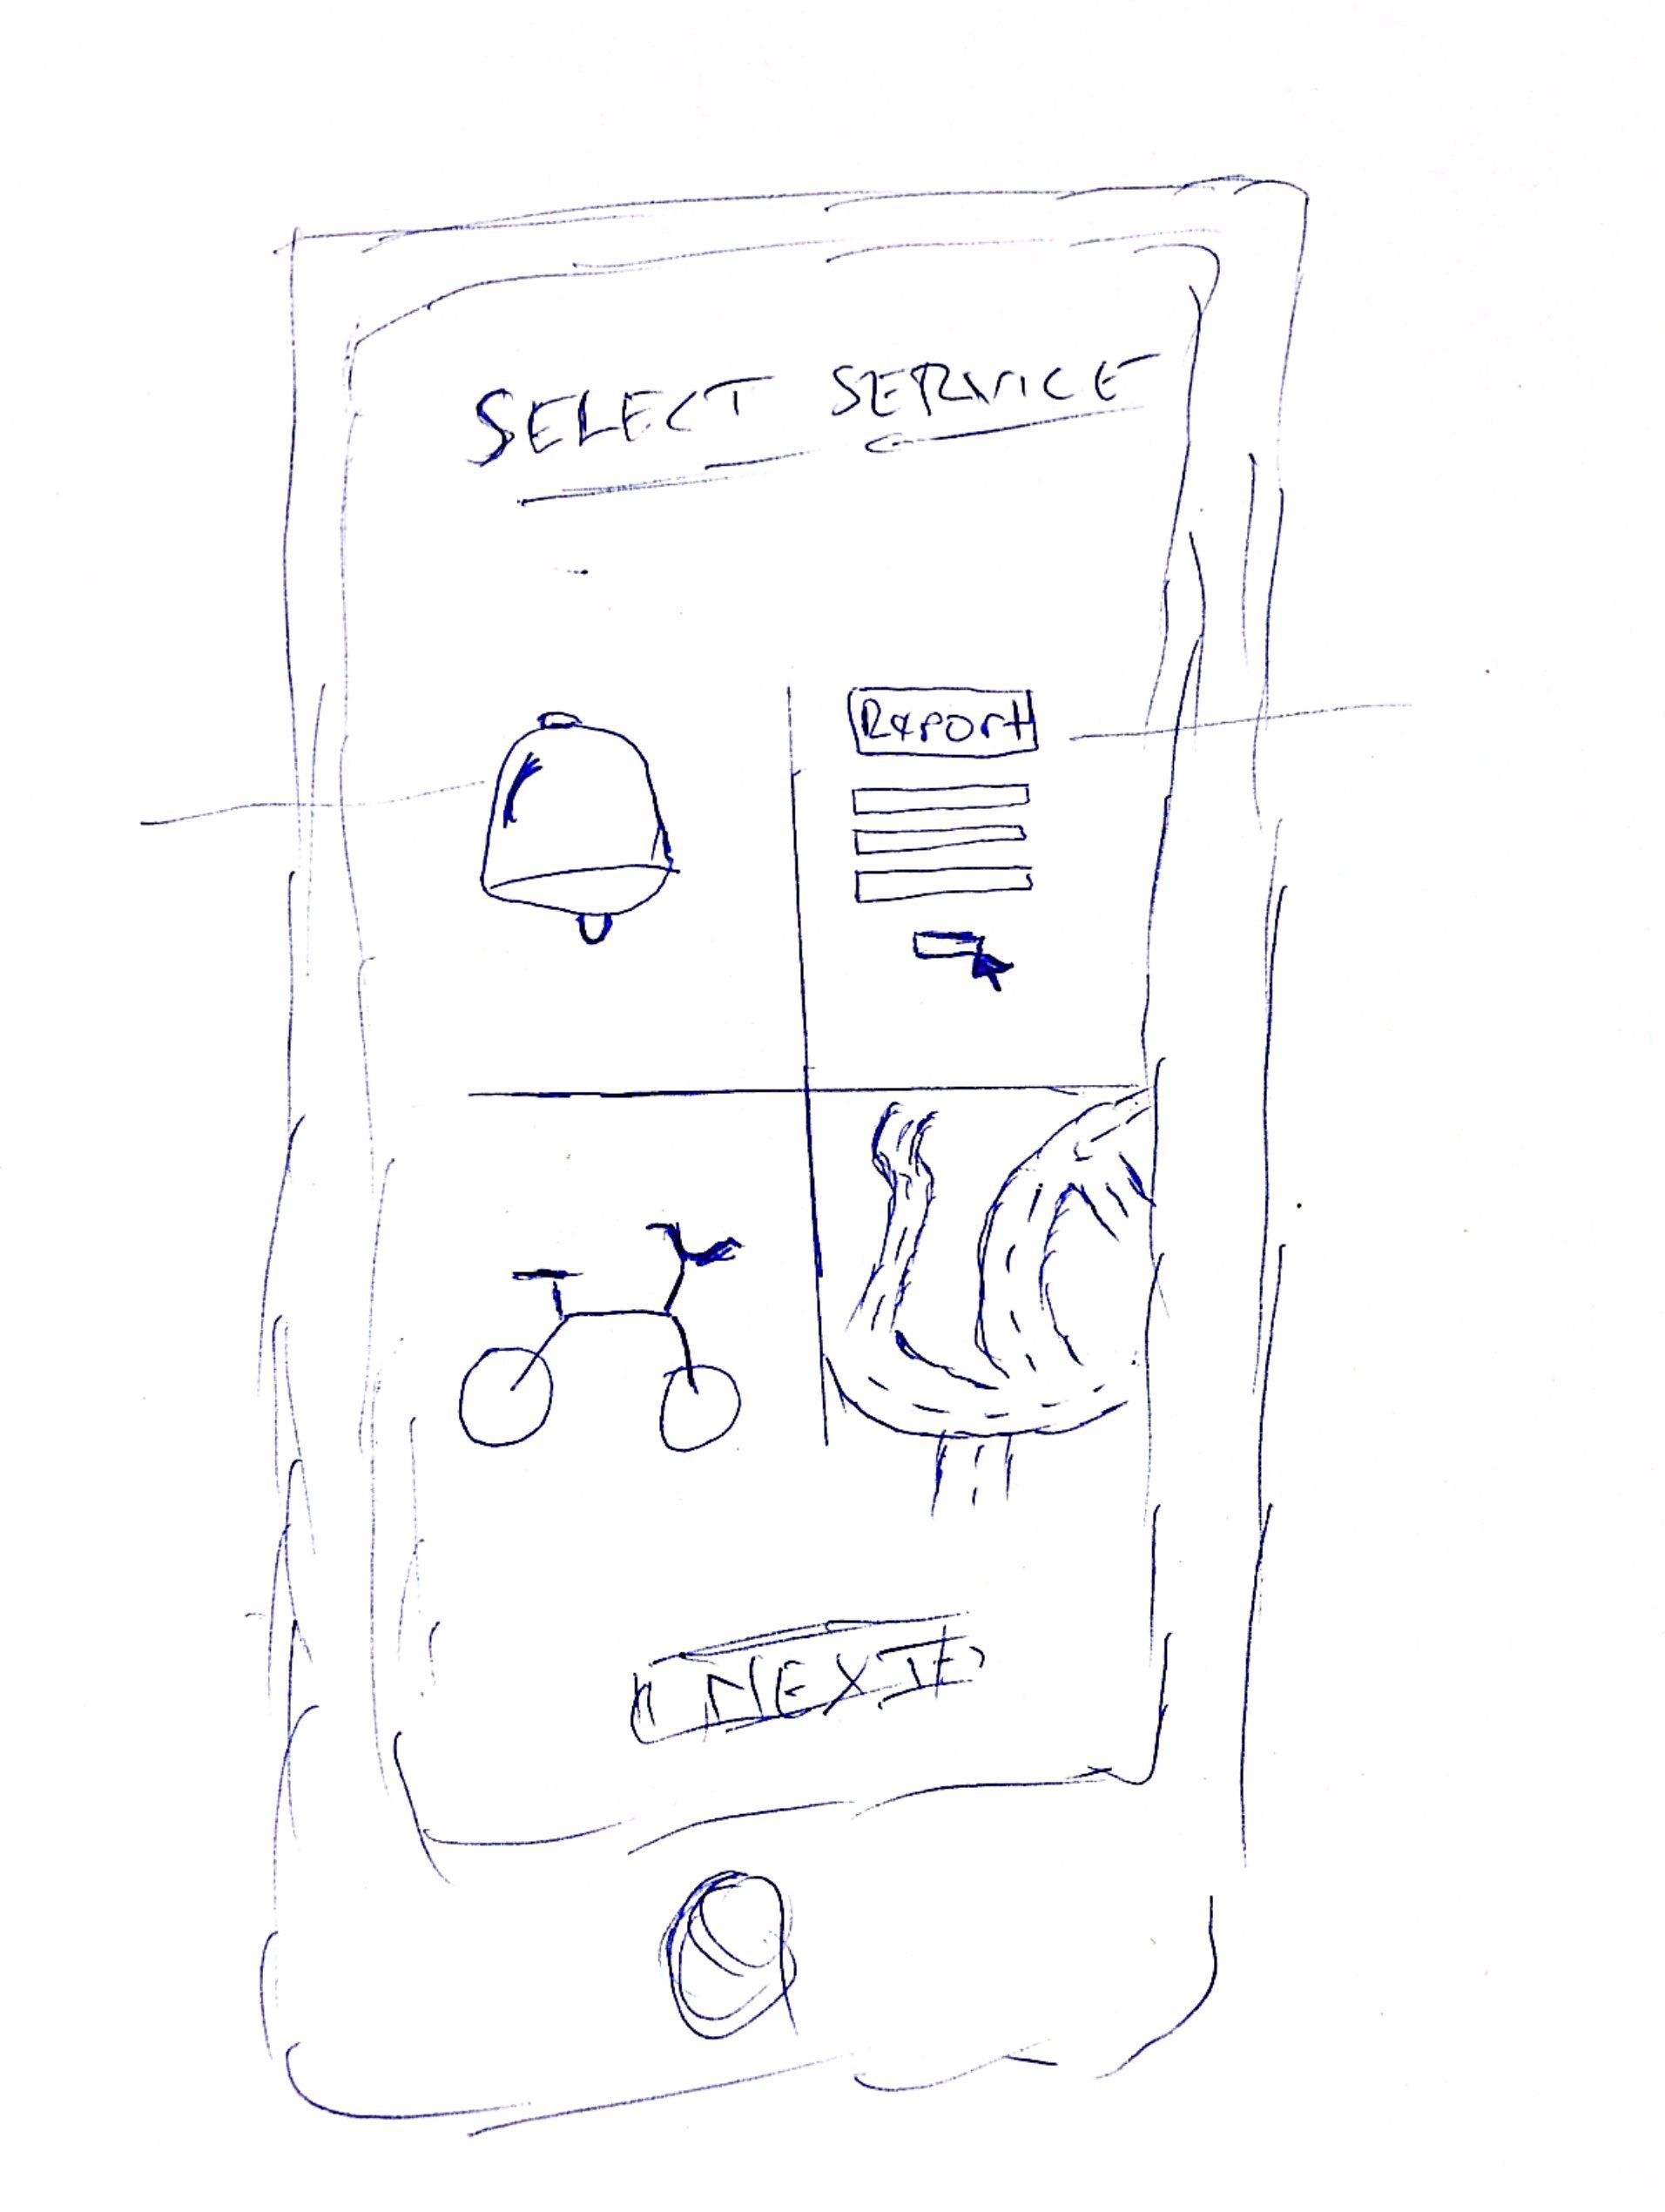 SELECT SERVICE
Report
NEXT